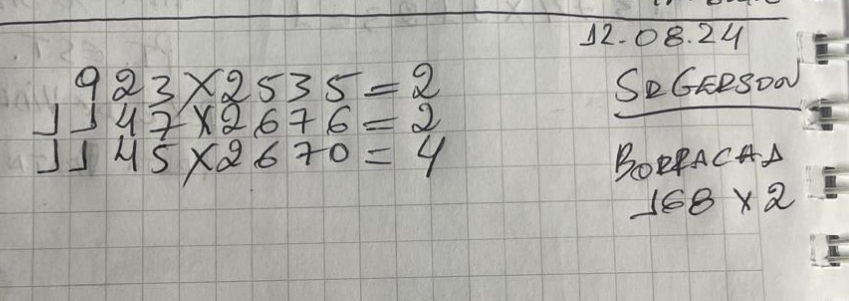 12.08.24
923x2535=2
1147x2676=2
1145x2670=4
SR GERSON
BORRACHA
168 x 2